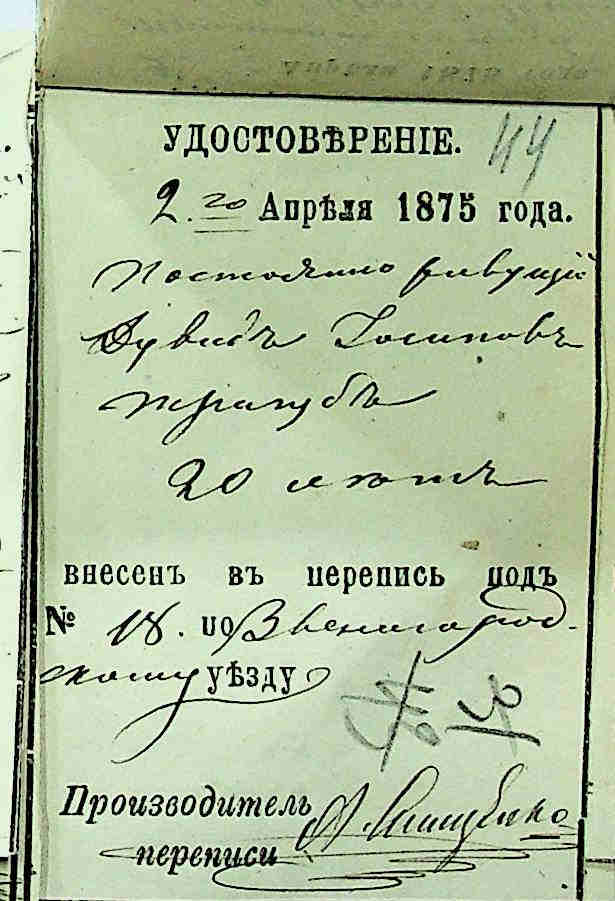 УДОСТОВѢРЕНІЕ. 44
2го Апрѣля 1875 года.
Постоянно живущій
Дувидъ Іосиповъ
20 летъ
внесенъ въ перепись подъ
№ 18. по Звенигород-
скому уѣзду
Производитель
переписи